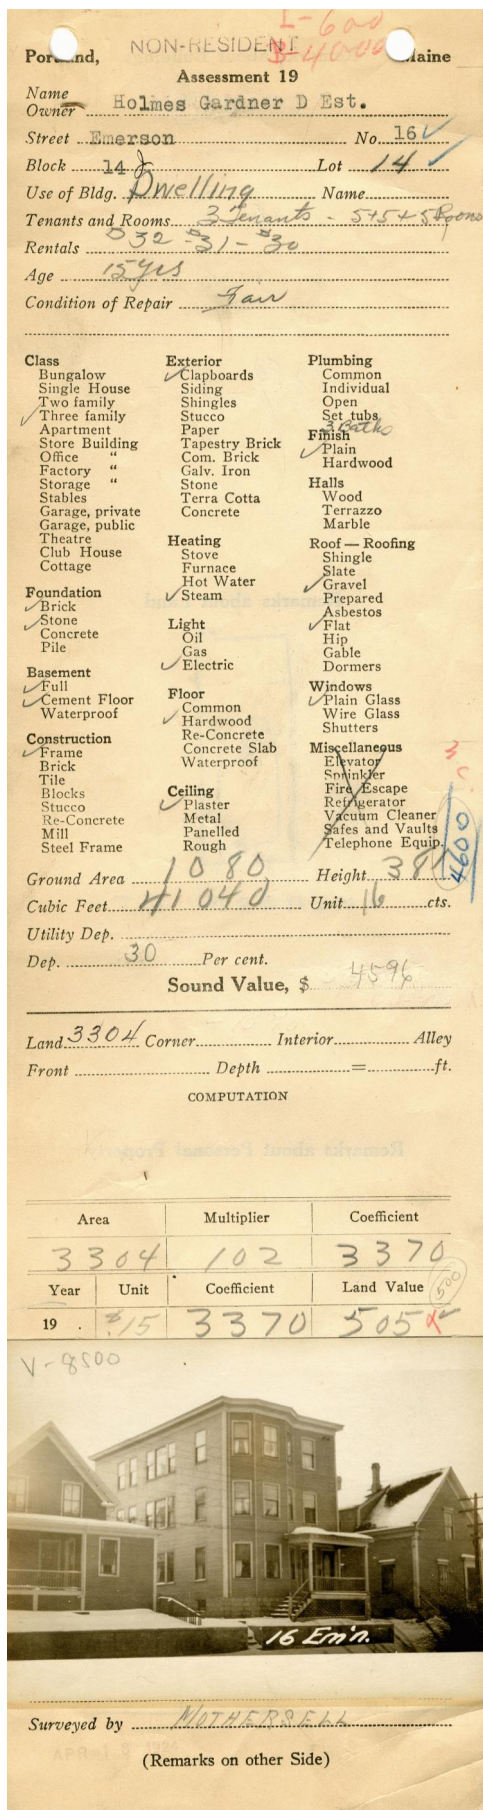 L-600
NON-RESIDENT
B-4000
Portland, Maine
Assessment 19
Name
Owner Holmes Gardner D Est.
Street Emerson No. 16
Block 14 J Lot 14
Use of Bldg. Dwelling Name
Tenants and Rooms 3 Tenants - 5+5+5 Rooms
Rentals $32 - $31 - $30
Age 15 yrs
Condition of Repair Fair
Class
Bungalow
Single House
Two family
Three family
Apartment
Store Building
Office "
Factory "
Storage "
Stables
Garage, private
Garage, public
Theatre
Club House
Cottage
Foundation
Brick
Stone
Concrete
Pile
Basement
Full
Cement Floor
Waterproof
Construction
Frame
Brick
Tile
Blocks
Stucco
Re-Concrete
Mill
Steel Frame
Exterior
Clapboards
Siding
Shingles
Stucco
Paper
Tapestry Brick
Com. Brick
Galv. Iron
Stone
Terra Cotta
Concrete
Heating
Stove
Furnace
Hot Water
Steam
Light
Oil
Gas
Electric
Floor
Common
Hardwood
Re-Concrete
Concrete Slab
Waterproof
Ceiling
Plaster
Metal
Panelled
Rough
Plumbing
Common
Individual
Open
Set tubs
3 Baths
Finish
Plain
Hardwood
Halls
Wood
Terrazzo
Marble
Roof — Roofing
Shingle
Slate
Gravel
Prepared
Asbestos
Flat
Hip
Gable
Dormers
Windows
Plain Glass
Wire Glass
Shutters
Miscellaneous
Elevator
Sprinkler
Fire Escape
Refrigerator
Vacuum Cleaner
Safes and Vaults
Telephone Equip.
4600
Ground Area 1080 Height 38
Cubic Feet 41040 Unit 16 cts.
Utility Dep.
Dep. 30 Per cent.
Sound Value, $ 4596
Land 3304 Corner Interior Alley
Front Depth = ft.
COMPUTATION
Area Multiplier Coefficient
3304 102 3370
Year Unit Coefficient Land Value 500
19 $.15 3370 505
V-8500
16 Em'n.
Surveyed by MOTHERSELL
(Remarks on other Side)